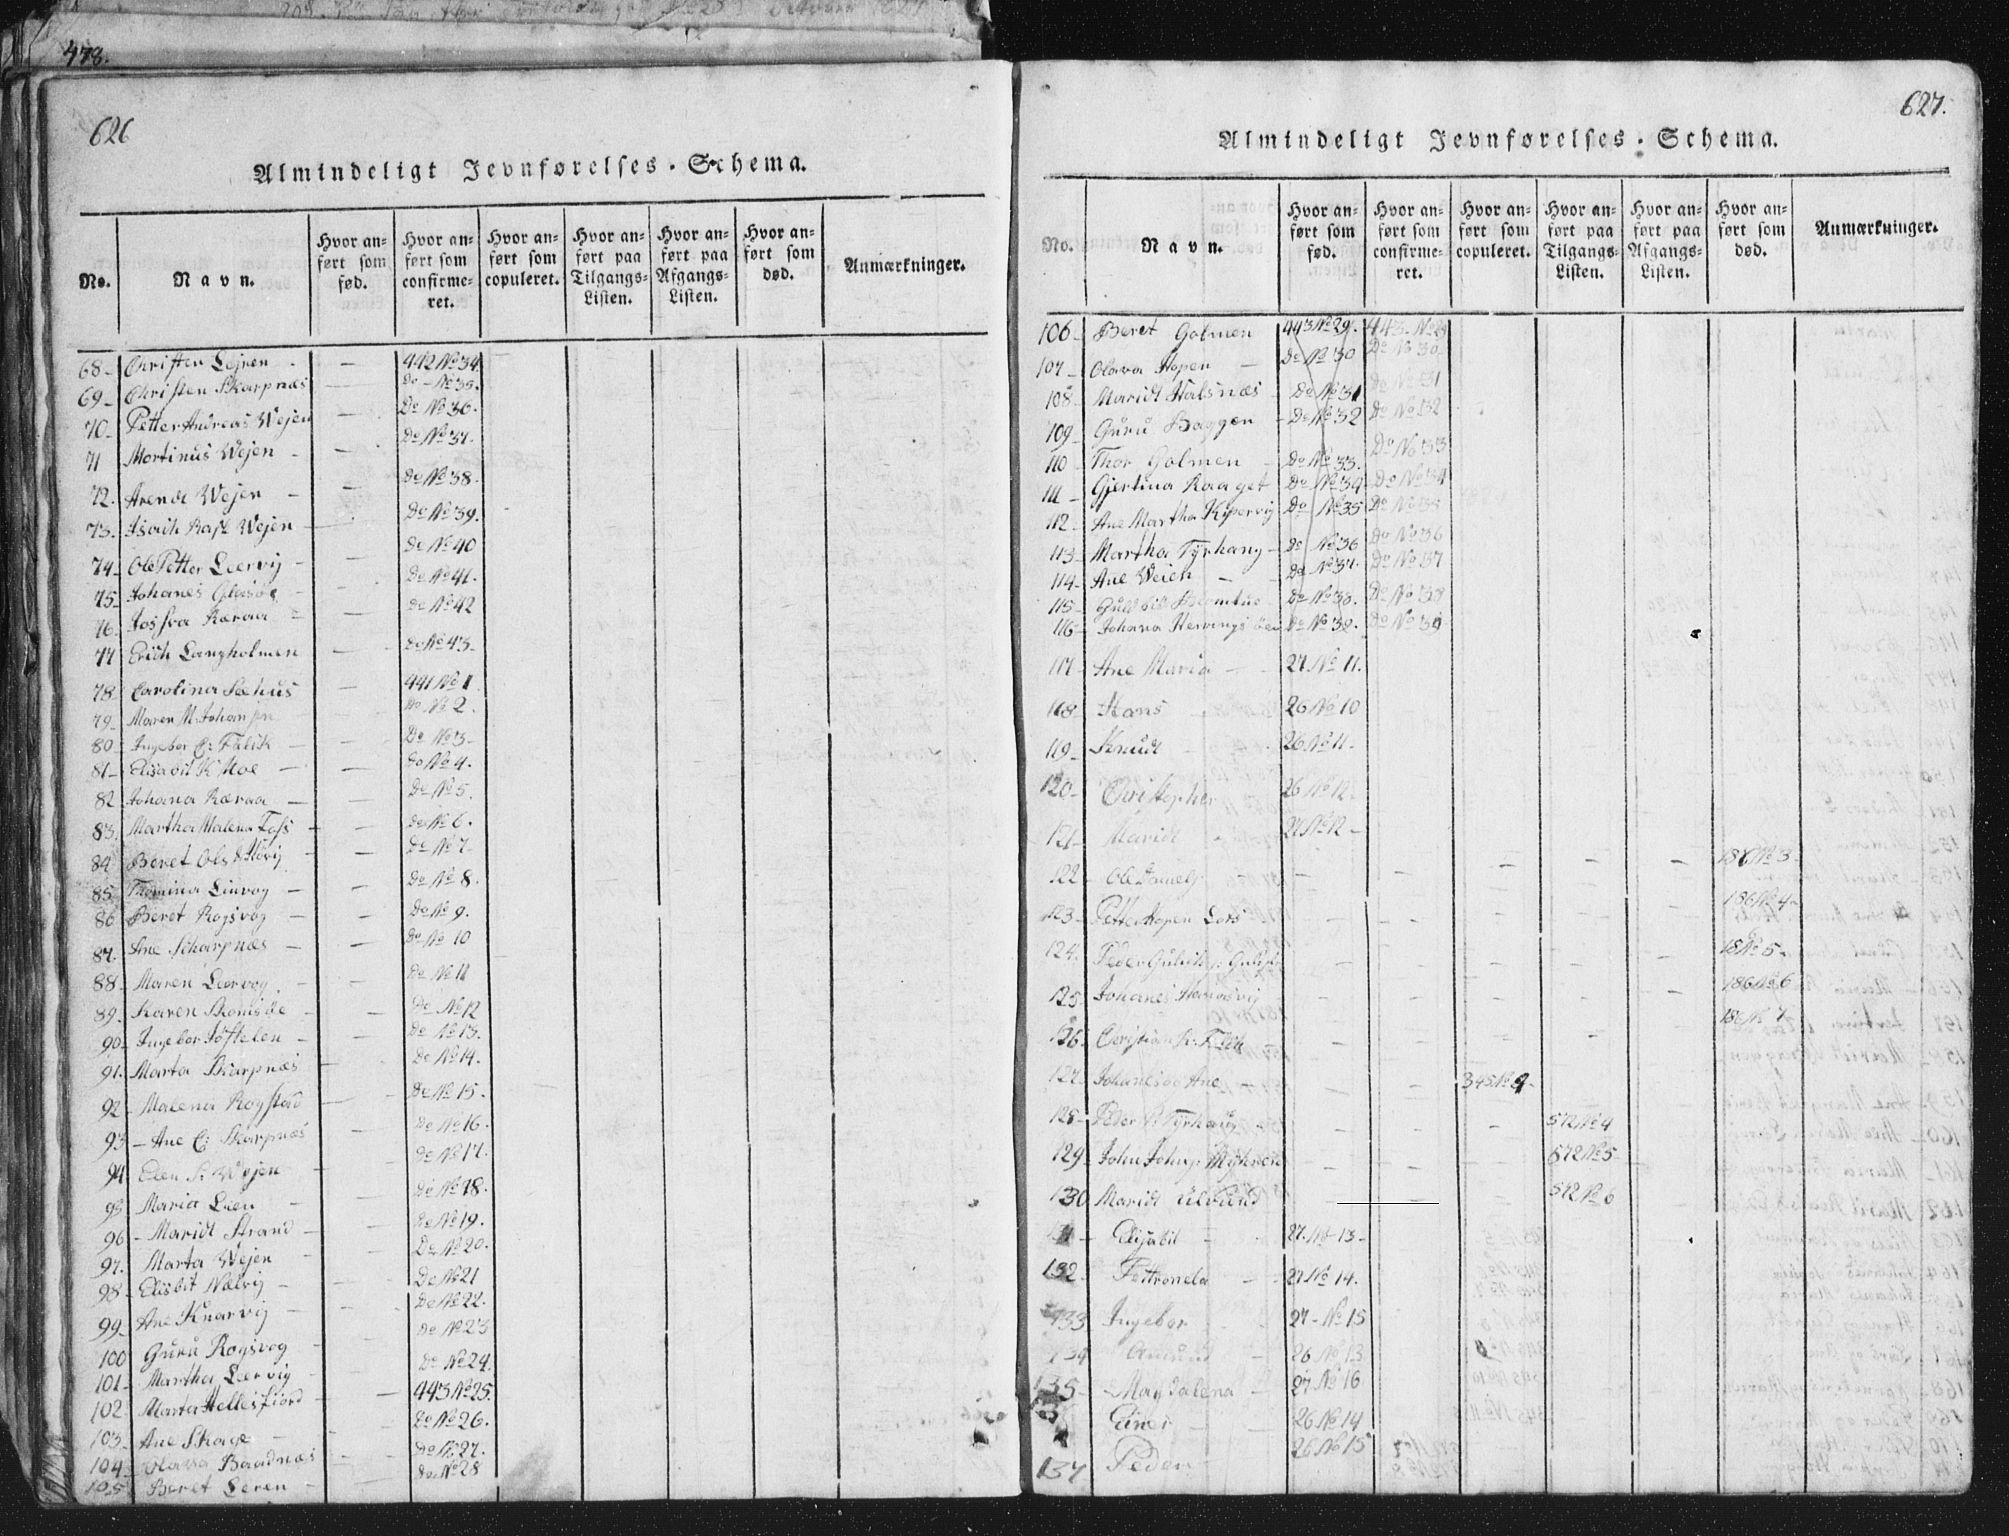 478.
626
Almindeligt Jevnførelses-Schema.
No. Navn. Hvor anført som fød. Hvor anført som confirmeret. Hvor anført som copuleret. Hvor anført paa Tilgangs-Listen. Hvor anført paa Afgangs-Listen. Hvor anført som død. Anmærkninger.
68 Christen Lejren - 442 No 34
69 Christen Skarpnæs Do No 35.
70 Petter Andreas Wejen - Do No 36.
71 Mortinus Wejen - Do No 37.
72. Arendt Wejen - Do No 38.
73. Isach Wejen - Do No 39.
74 Ole Petter Leervig - Do No 40
75 Johanes - Do No 41.
76 Kæraa - Do No 42
77 Erich Langholmen - Do No 43
78 Carolina Sæhus - 441 No 1
79 Maren M. Johansen Do No 2.
80 Ingebor C: Falik - Do No 3
81 Elisabit K Moe - Do No 4.
82 Johana Kæraa - Do No 5.
83. Martha Malena Foss Do No 6.
84 Beret Do No 7
85 Thomina Linvog - Do No 8.
86 Beret Rojsvog - Do No 9.
87. Ane Scharpnæs - Do No 10
88 Maren Leervog - Do No 11
89. Karen - Do No 12
90 Ingebor Toftelen - Do No 13.
91. Marta Skarpnæs Do No 14.
92 Malena Rogstad Do No 15.
93 Ane E: Skarpnæs Do No 16.
94 Elen S: Wejen Do No 17.
95 Maria Lien - Do No 18.
96 Maridt Strand - Do No 19.
97. Marta Wejen - Do No 20.
98 Elisbit Nælvig - Do No 21
99 Ane Knarvig - Do No 22.
100 Guru Rogsvog - Do No 23
101 Martha Leervig Do No 24.
102 Marta Hellesfiord - 443 No 25.
103 Ane Skage - Do No 26.
104 Olava Baadnæs Do No 27.
105 Beret Leren - Do No 28
627.
Almindeligt Jevnførelses-Schema.
No. Navn. Hvor anført som fød. Hvor anført som confirmeret. Hvor anført som copuleret. Hvor anført paa Tilgangs-Listen. Hvor anført paa Afgangs-Listen. Hvor anført som død. Anmærkninger.
106 Beret Golmen 443 No 29. 443. No 29
107 Olava Hopen - Do No 30 Do No 30
108 Maridt Halsnæs Do No 31 Do No 31
109 Guru Baggen Do No 32 Do No 32
110 Thor Golmen Do No 33. Do No 33
111 Gjertina Do No 34 Do No 34
112 Ane Martha Kipervig Do No 35 Do No 35
113 Martha Tyrhaug - Do No 36 Do No 36
114 Ane Weien - Do No 37. Do No 37
115 Do No 38. Do No 38
116 Johana Do No 39. Do No 39
117 Ane Maria - 27 No 11.
118 Hans 26 No 10
119 Knudt - 26 No 11.
120 Christopher 26 No 12.
121 Maridt 27 No 12 -
122 Ole 186 No 3
123 Petter Hopen 186 No 4
124 Peder 18 No 5
125 Johanes 186 No 6
126. Christian 186 No 7
127. Johanes og Ane 345 No 9
128 Peder Tyrhaug - 572 No 4
129 John Johns: 572 No 5
130 Maridt Ulvund 572 No 6
131 Elisabit - 27. No 13
132 Pettronela - 27 No 14.
133 Ingebor 27 - No 15
134 Amund 26 No 13
135 Magdalena - 27 No 16
Einer 26 No 14
137 Peder 26 No 15